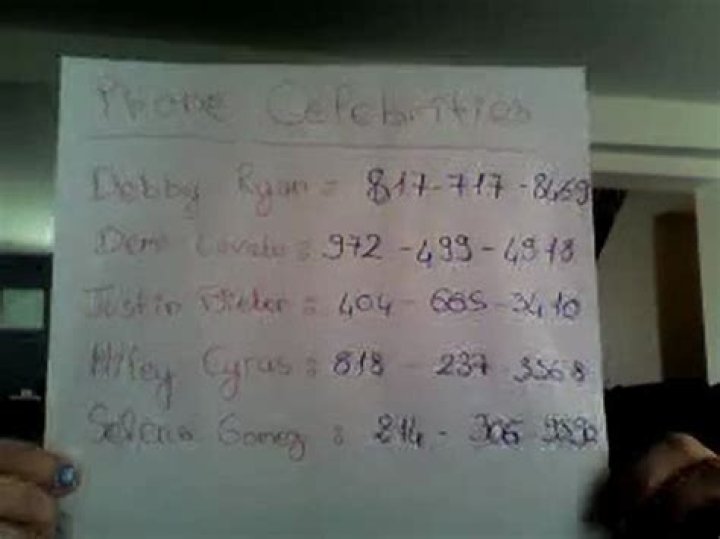 Phone Celebrities
Debby Ryan = 817-717-8469
Demi Lovato : 972 -499 -
Justin Bieber : 404 - 665 -3410
Miley Cyrus : 818 - 237 - 3568
Selena Gomez : 214 -